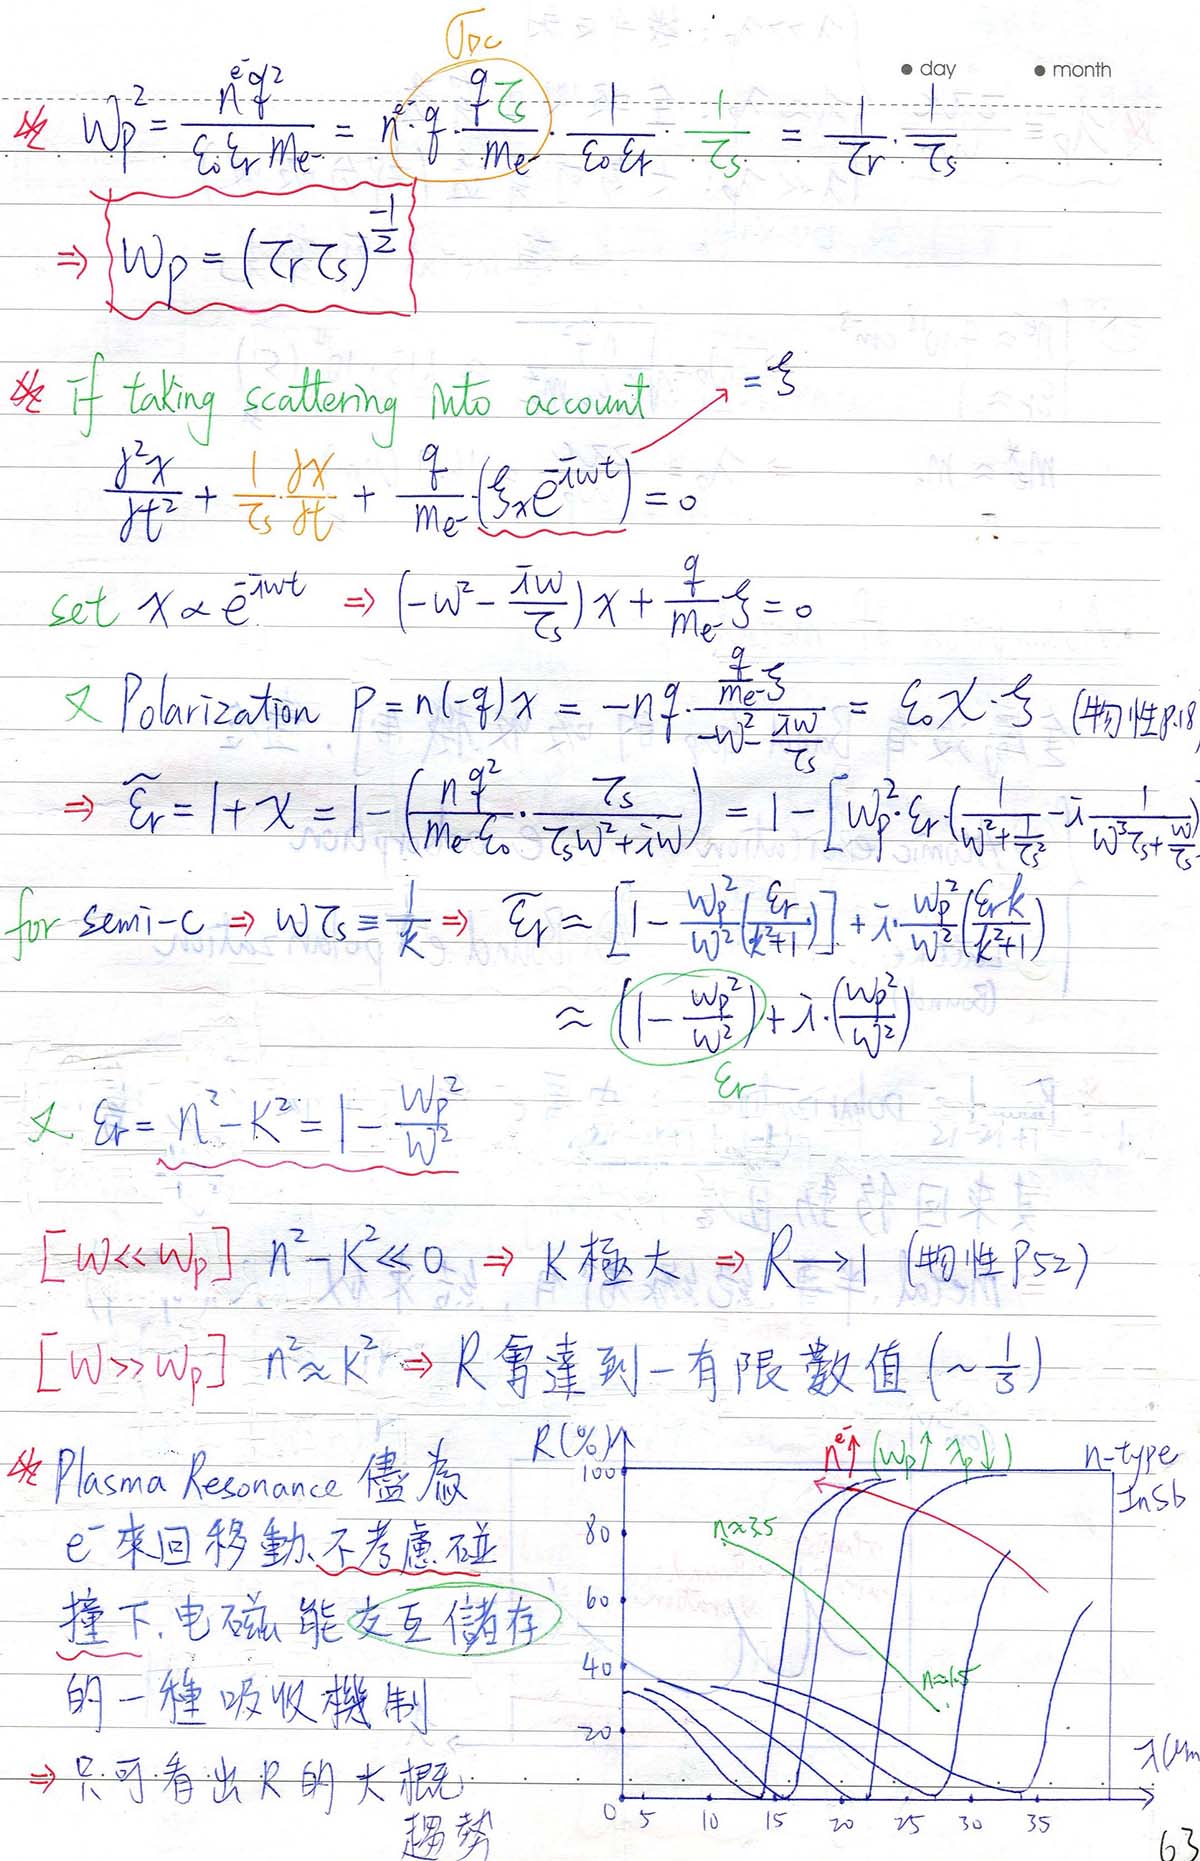 σDC
• day • month
※ Wp² = n^e⁻ q² / (ε₀ εr me⁻) = n^e⁻ · q · qτs / me⁻ · 1 / (ε₀ εr) · 1/τs = 1/τr · 1/τs
⇒ Wp = (τr τs)^(-1/2)
※ if taking scattering into account
= ξ
∂²x/∂t² + 1/τs · ∂x/∂t + q/me⁻ (ξx e^(-iwt)) = 0
set x ∝ e^(-iwt) ⇒ (-w² - iw/τs) x + q/me⁻ ξ = 0
又 Polarization P = n(-q)x = -nq · (q/me⁻ ξ) / (-w² - iw/τs) = ε₀ χ · ξ (物性P.18)
⇒ ε̃r = 1 + χ = 1 - (nq² / (me⁻ ε₀) · τs / (τs w² + iw)) = 1 - [wp² · εr · (1 / (w² + 1/τs²) - i 1 / (w³τs + w/τs)
for semi-c ⇒ wτs ≡ 1/k ⇒ ε̃r ≈ [1 - wp²/w² (εr / (k²+1))] + i · wp²/w² (εr k / (k²+1))
≈ (1 - wp²/w²) + i · (wp²/w²)
εr
又 εr = n² - K² = 1 - wp²/w²
[w << wp] n² - K² << 0 ⇒ K 極大 ⇒ R → 1 (物性 P52)
[w >> wp] n² ≈ K² ⇒ R 會達到一有限數值 (~ 1/3)
※ Plasma Resonance 儘為
e⁻ 來回移動、不考慮碰
撞下, 电磁能交互儲存
的一種吸收機制
⇒ 只可看出 R 的大概
趨勢
R(%)
n^e⁻↑ (wp↑ λp↓)
n-type
InSb
100
80
60
40
20
n≈3.5
n≈1.5
λ(μm
0 5 10 15 20 25 30 35
63